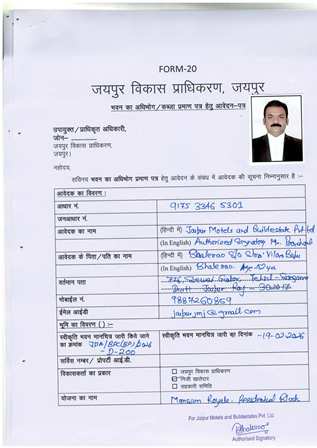 FORM-20
जयपुर विकास प्राधिकरण, जयपुर
भवन का अधिभोग/कब्जा प्रमाण पत्र हेतु आवेदन-पत्र
उपायुक्त/ प्राधिकृत अधिकारी,
जोन-
जयपुर विकास प्राधिकरण,
जयपुर।
महोदय,
भवन का अधिभोग प्रमाण पत्र हेतु आवेदन के संबंध में आवेदक की सूचना निम्नानुसार है :-
आवेदक का विवरण :
आधार नं. 9175 3346 5301
जनआधार नं.
आवेदक का नाम (हिन्दी में) Jaipur Motels and Buildestate Pvt Ltd
(In English) Authorised Signatory Mr.
आवेदक के पिता/पति का नाम (हिन्दी में) Bhalerao S/o
(In English) Bhalerao
वर्तमान पता
Jaipur Raj - 302017
मोबाईल नं. 9887260859
ईमेल आईडी jaipur.jmj@gmail.com
भूमि का विवरण () :-
स्वीकृति भवन मानचित्र जारी किये जाने का क्रमांक
D-200
स्वीकृति भवन मानचित्र जारी का दिनांक -19-02-2026
सर्विस नम्बर/ प्रोपर्टी आई.डी.
विकासकर्ता का प्रकार
जयपुर विकास प्राधिकरण
निजी खातेदार
सहकारी समिति
योजना का नाम Mansion Royale, Residential Block
For Jaipur Motels and Buildestates Pvt. Ltd.
Authorised Signatory